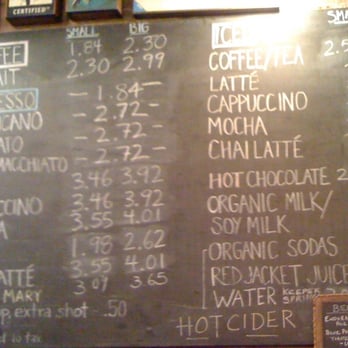 CERTIFIED
SMALL BIG
FFE 1.84 2.30
AIT 2.30 2.99
ESSO - 1.84 -
ICANO - 2.72 -
ATO - 2.72 -
MACCHIATO - 2.72 -
3.46 3.92
CCINO 3.46 3.92
A 3.55 4.01
1.98 2.62
3.55 4.01
ATTÉ 3.09 3.65
MARY
p, extra shot - .50
to tax
ICE
SMA
COFFEE/TEA 2.5
LATTÉ
CAPPUCCINO
MOCHA
CHAI LATTÉ
HOT CHOCOLATE 2
ORGANIC MILK/
SOY MILK
ORGANIC SODAS
RED JACKET JUICE
WATER KEEPER
SPRING
HOT CIDER